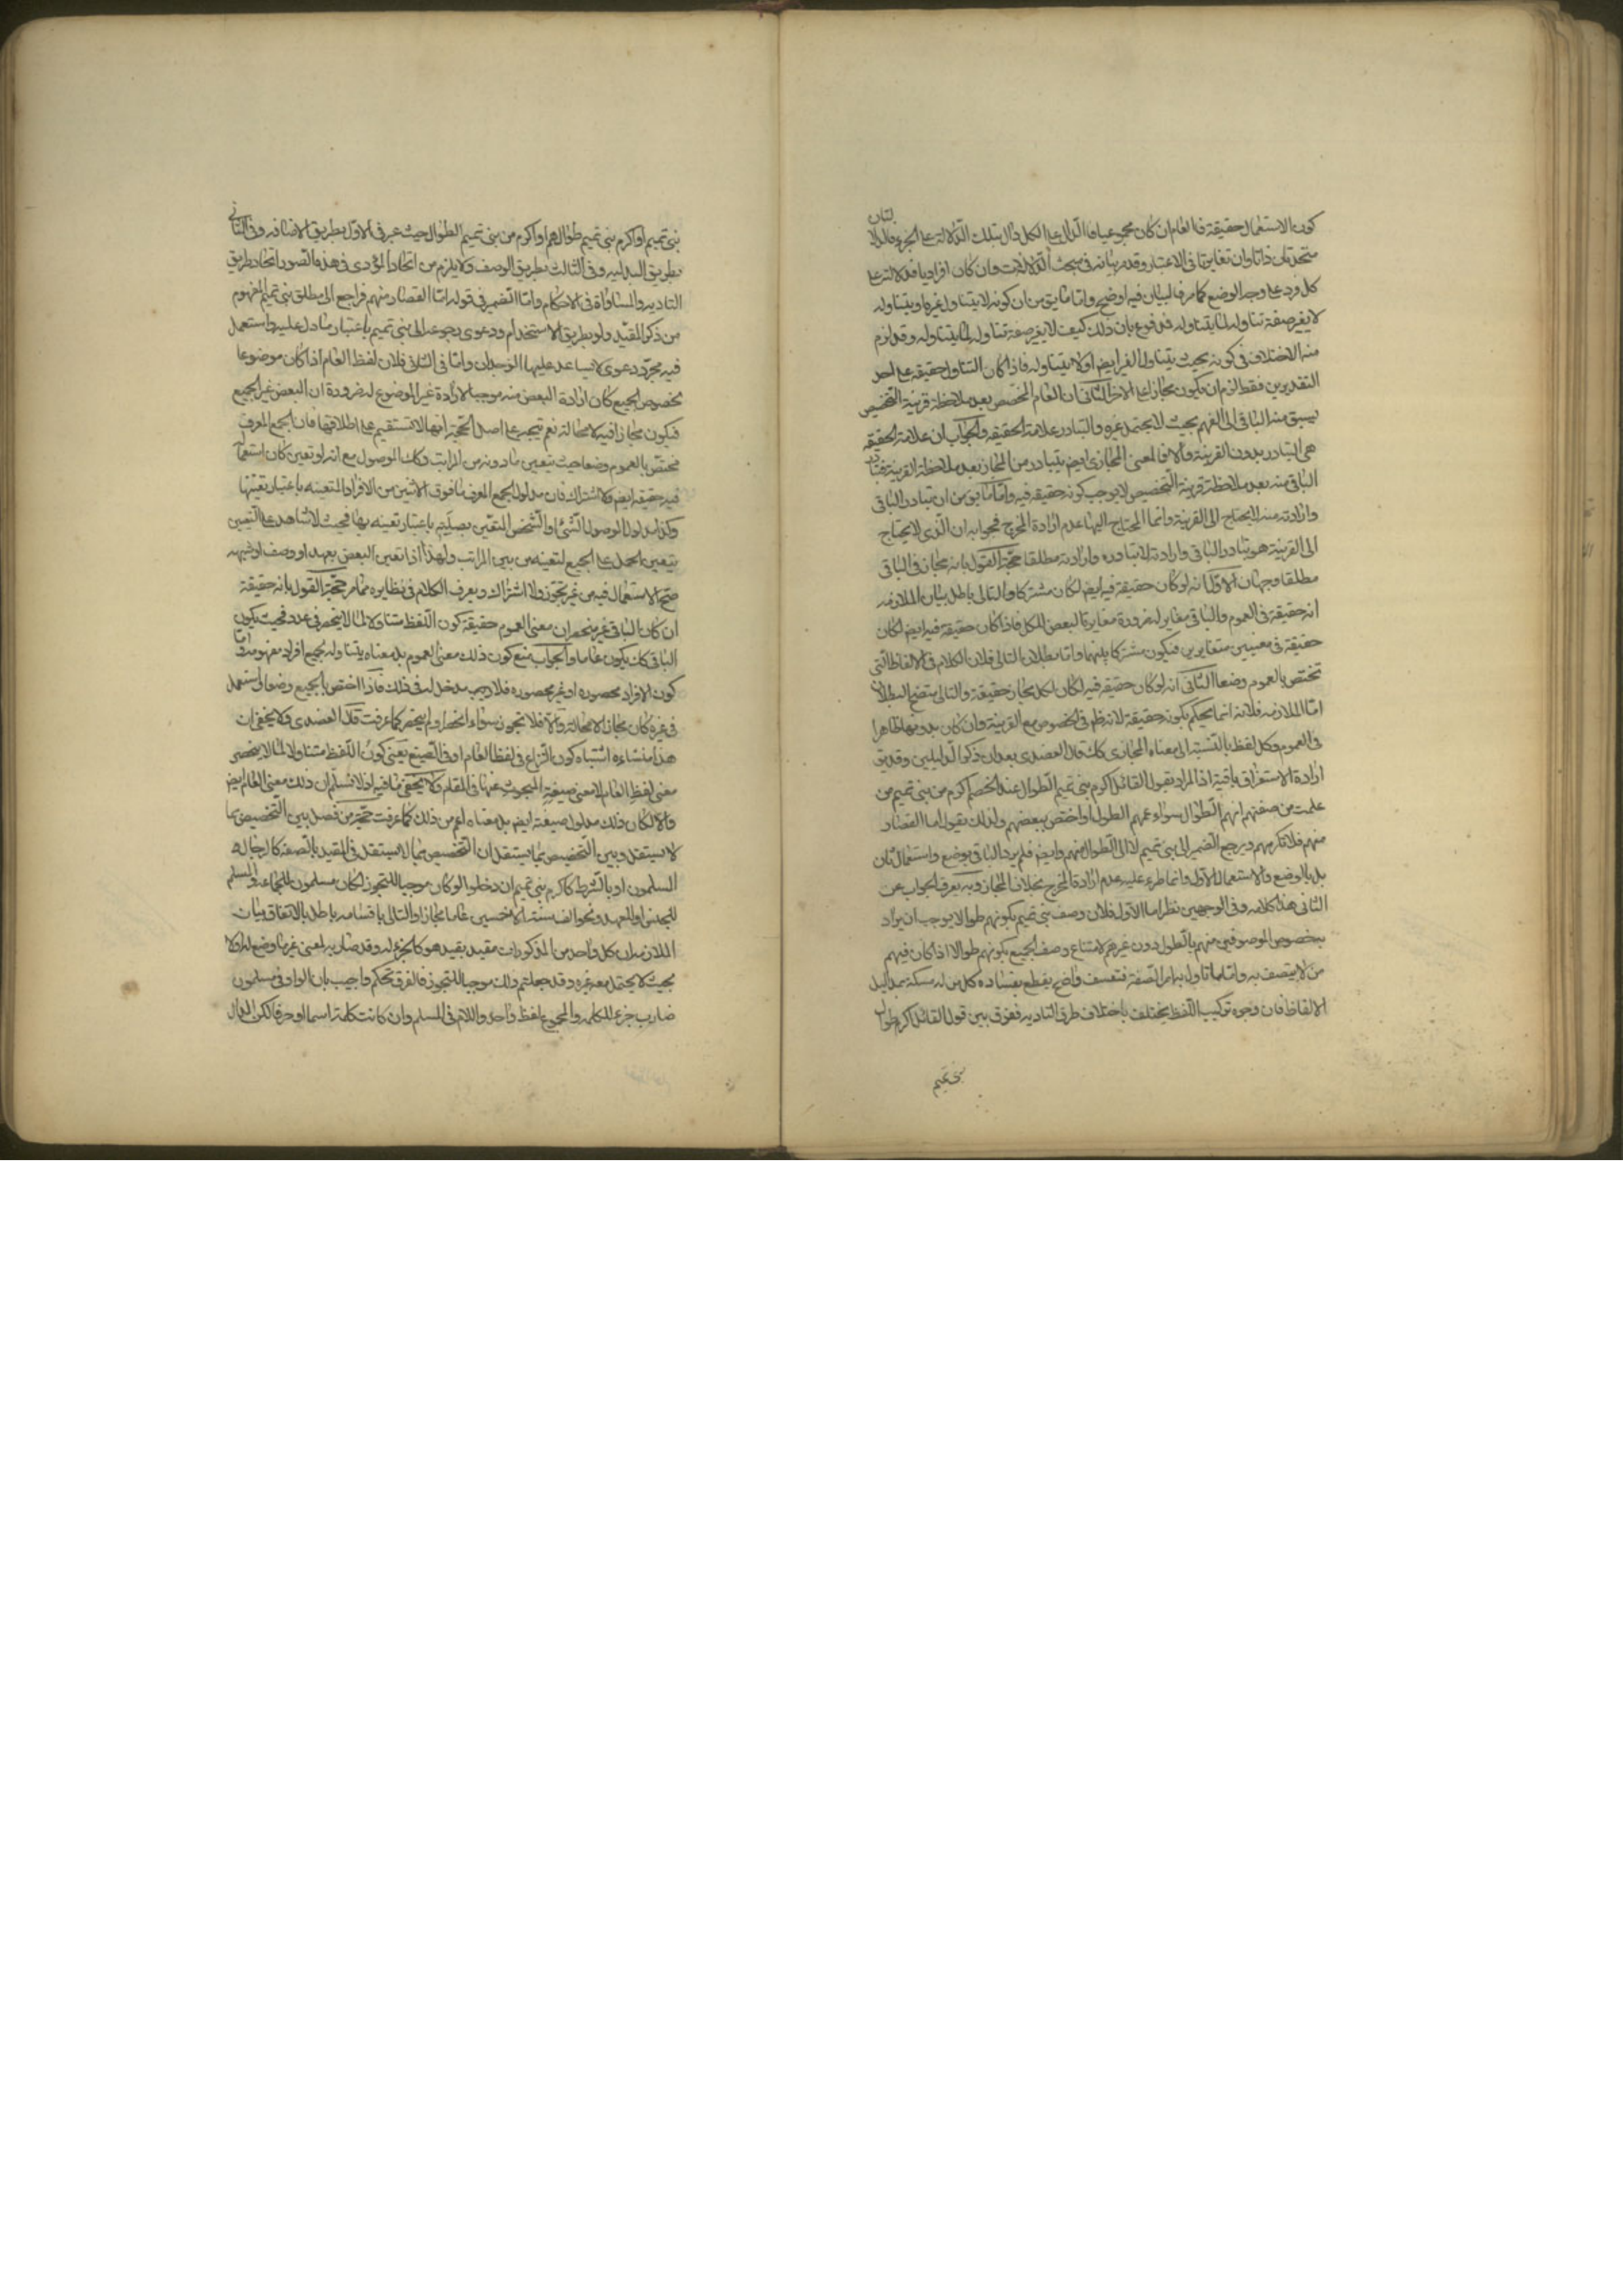 كون الاستعمال حقيقة فالعام ان كان مجموعيا فالدال على الكل دال بتلك الدلالة على الجزء فالدلالتان
متحدتان ذاتا وان تغايرتا في الاعتبار وقد مر بيانه في مبحث الدلالات وان كان افراديا فدلالته على
كل فرد على وجه الوضع كما مر فالبيان فيه اوضح واما ما يق من ان كونه لا يتناول غيره او يتناوله
لا يغير صفة تناوله لما يتناوله فمدفوع بان ذلك كيف لا يغير صفة تناوله لما يتناوله وقد لزم
منه الاختلاف في كونه بحيث يتناول الغير ايض او لا يتناوله فاذا كان التناول حقيقة على احد
التقديرين فقط لزم ان يكون مجازا على الاخر الثاني ان العام المخصص بعد ملاحظة قرينة التخصيص
يسبق منه الباقي الى الفهم بحيث لا يحتمل غيره والتبادر علامة الحقيقة والجواب ان علامة الحقيقة
هي التبادر بدون القرينة والا فالمعنى المجازي ايض يتبادر من المجاز بعد ملاحظة القرينة فتبادر
الباقي منه بعد ملاحظة قرينة التخصيص لا يوجب كونه حقيقة فيه واما ما يق من ان تبادر الباقي
وارادته منه لا يحتاج الى القرينة وانما المحتاج اليها عدم ارادة المخرج فجوابه ان الذي لا يحتاج
الى القرينة هو تبادر الباقي وارادته لا تبادره وارادته مطلقا حجة القول بانه مجاز في الباقي
مطلقا وجهان الاول انه لو كان حقيقة فيه ايض لكان مشتركا والتالي باطل بيان الملازمة
انه حقيقة في العموم والباقي مغاير له ضرورة مغايرة البعض للكل فاذا كان حقيقة فيه ايض لكان
حقيقة في معنيين متغايرين فيكون مشتركا بينهما واما بطلان التالي فلان الكلام في الالفاظ التي
تختص بالعموم وضعا الثاني انه لو كان حقيقة فيه لكان كل مجاز حقيقة والتالي متضح البطلان
اما الملازمة فلانه انما يحكم بكونه حقيقة لانه ظم في الخصوص مع القرينة وان كان بدونها ظاهرا
في العموم وكل لفظ بالنسبة الى معناه المجازي كك قال العضدي بعد ان ذكر الدليلين وقد يق
ارادة الاستغراق باقية اذ المراد بقول القائل اكرم بني تميم الطوال عند الخصم اكرم من بني تميم من
علمت من صفتهم انهم الطوال سواء عمهم الطول او اختص ببعضهم ولذلك يقول اما القصار
منهم فلا تكرمهم ويرجع الضمير الى بني تميم لا الى الطوال منهم وايض فلم يرد الباقي بوضع واستعمال ثان
بل بالوضع والاستعمال الاول وانما طرء عليه عدم ارادة المخرج بخلاف المجاز وبه يعرف الجواب عن
الثاني هذا كلامه وفي الوجهين نظر اما الاول فلان وصف بني تميم بكونهم طوالا يوجب ان يراد
بخصوص الموصوفين منهم بالطول دون غيرهم لامتناع وصف الجميع بكونهم طوالا اذا كان فيهم
من لا يتصف به واما ما تاول به امر الصفة فتعسف واضح يقطع بفساده كل من له مسكة بمداليل
الالفاظ فان وجوه تركيب اللفظ يختلف باختلاف طرق التادية ففرق بين قول القائل اكرم طوال
بني تميم
بني تميم او اكرم بني تميم طوالهم او اكرم من بني تميم الطوال حيث عبر في الاول بطريق الاضافه وفي الثاني
بطريق البدليه وفي الثالث بطريق الوصف ولا يلزم من اتحاد المؤدى في هذه الصور اتحاد طريق
التاديه والمساواة في الاحكام واما الضمير في قوله اما القصار منهم فراجع الى مطلق بني تميم المفهوم
من ذكر المقيد ولو بطريق الاستخدام ودعوى رجوعه الى بني تميم باعتبار ما دل عليه واستعمل
فيه مجرد دعوى لا يساعد عليها الوجدان واما في الثاني فلان لفظ العام اذا كان موضوعا
لخصوص الجميع كان ارادة البعض منه موجبا لارادة غير الموضوع له ضرورة ان البعض غير الجميع
فيكون مجازا فيه لا محالة نعم يتجه على اصل الحجة انها لا تستقيم على اطلاقها فان الجمع المعرف
مختص بالعموم وضعا حيث يتعين ما دونه من المراتب وكك الموصول مع انه لو تعين كان استعماله
فيه حقيقة ايض كالاشتراك فان مدلول الجمع المعرف ما فوق الاثنين من الافراد المتعينه باعتبار تعينها
وكذا مدلول الموصول الشئ او الشخص المتعين بصلته باعتبار تعينه بها فحيث لا شاهد على التعيين
يتعين الحمل على الجميع لتعينه من بين المراتب ولهذا اذا تعين البعض بعهد او وصف او شبهه
صح الاستعمال فيه من غير تجوز ولا اشتراك ويعرف الكلام في نظايره مما مر حجة القول بانه حقيقة
ان كان الباقي غير منحصر ان معنى العموم حقيقة كون اللفظ متناولا لما لا ينحصر في عدد فحيث يكون
الباقي كك يكون عاما والجواب منع كون ذلك معنى العموم بل معناه يتناوله بجميع افراد مفهومه واما
كون الافراد محصوره او غير محصوره فلا دخل له في ذلك فاذا اختص بالجميع وضعا واستعمل
في غيره كان مجازا لا محالة والا فلا تجوز سواء انحصر او لم ينحصر كما عرفت قال العضدي ولا يخفى ان
هذا منشاءه اشتباه كون النزاع في لفظ العام او في الصيغ يعني كون اللفظ متناولا لما لا ينحصر
معنى لفظ العام لا معنى صيغة المبحوث عنها في المقام ولا يخفى ما فيه اذ لا نسلم ان ذلك معنى العام ايض
والا لكان ذلك مدلول صيغة ايض بل معناه اعم من ذلك كما عرفت حجة من فصل بين التخصيص بما
لا يستقل وبين التخصيص بما يستقل ان التخصيص بما لا يستقل في المقيد بالصفة كالرجال
المسلمون او بالشرط كاكرم بني تميم ان دخلوا لو كان موجبا للتجوز لكان مسلمون للجماعة والمسلم
للجنس او للعهد ونحو الف سنة الا خمسين عاما مجازا والتالي باقسامه باطل بالاتفاق بيان
الملازمه ان كل واحد من المذكورات مقيد بقيد هو كالجزء له وقد صار به لمعنى غير ما وضع له اولا
بحيث لا يحتمل معه غيره وقد جعلتم ذلك موجبا للتجوز فالفرق تحكم واجيب بان الواو في مسلمون
ضارب جزء للكلمه والمجموع لفظ واحد واللام في المسلم وان كانت كلمة اسما او حرفا لكن الدال